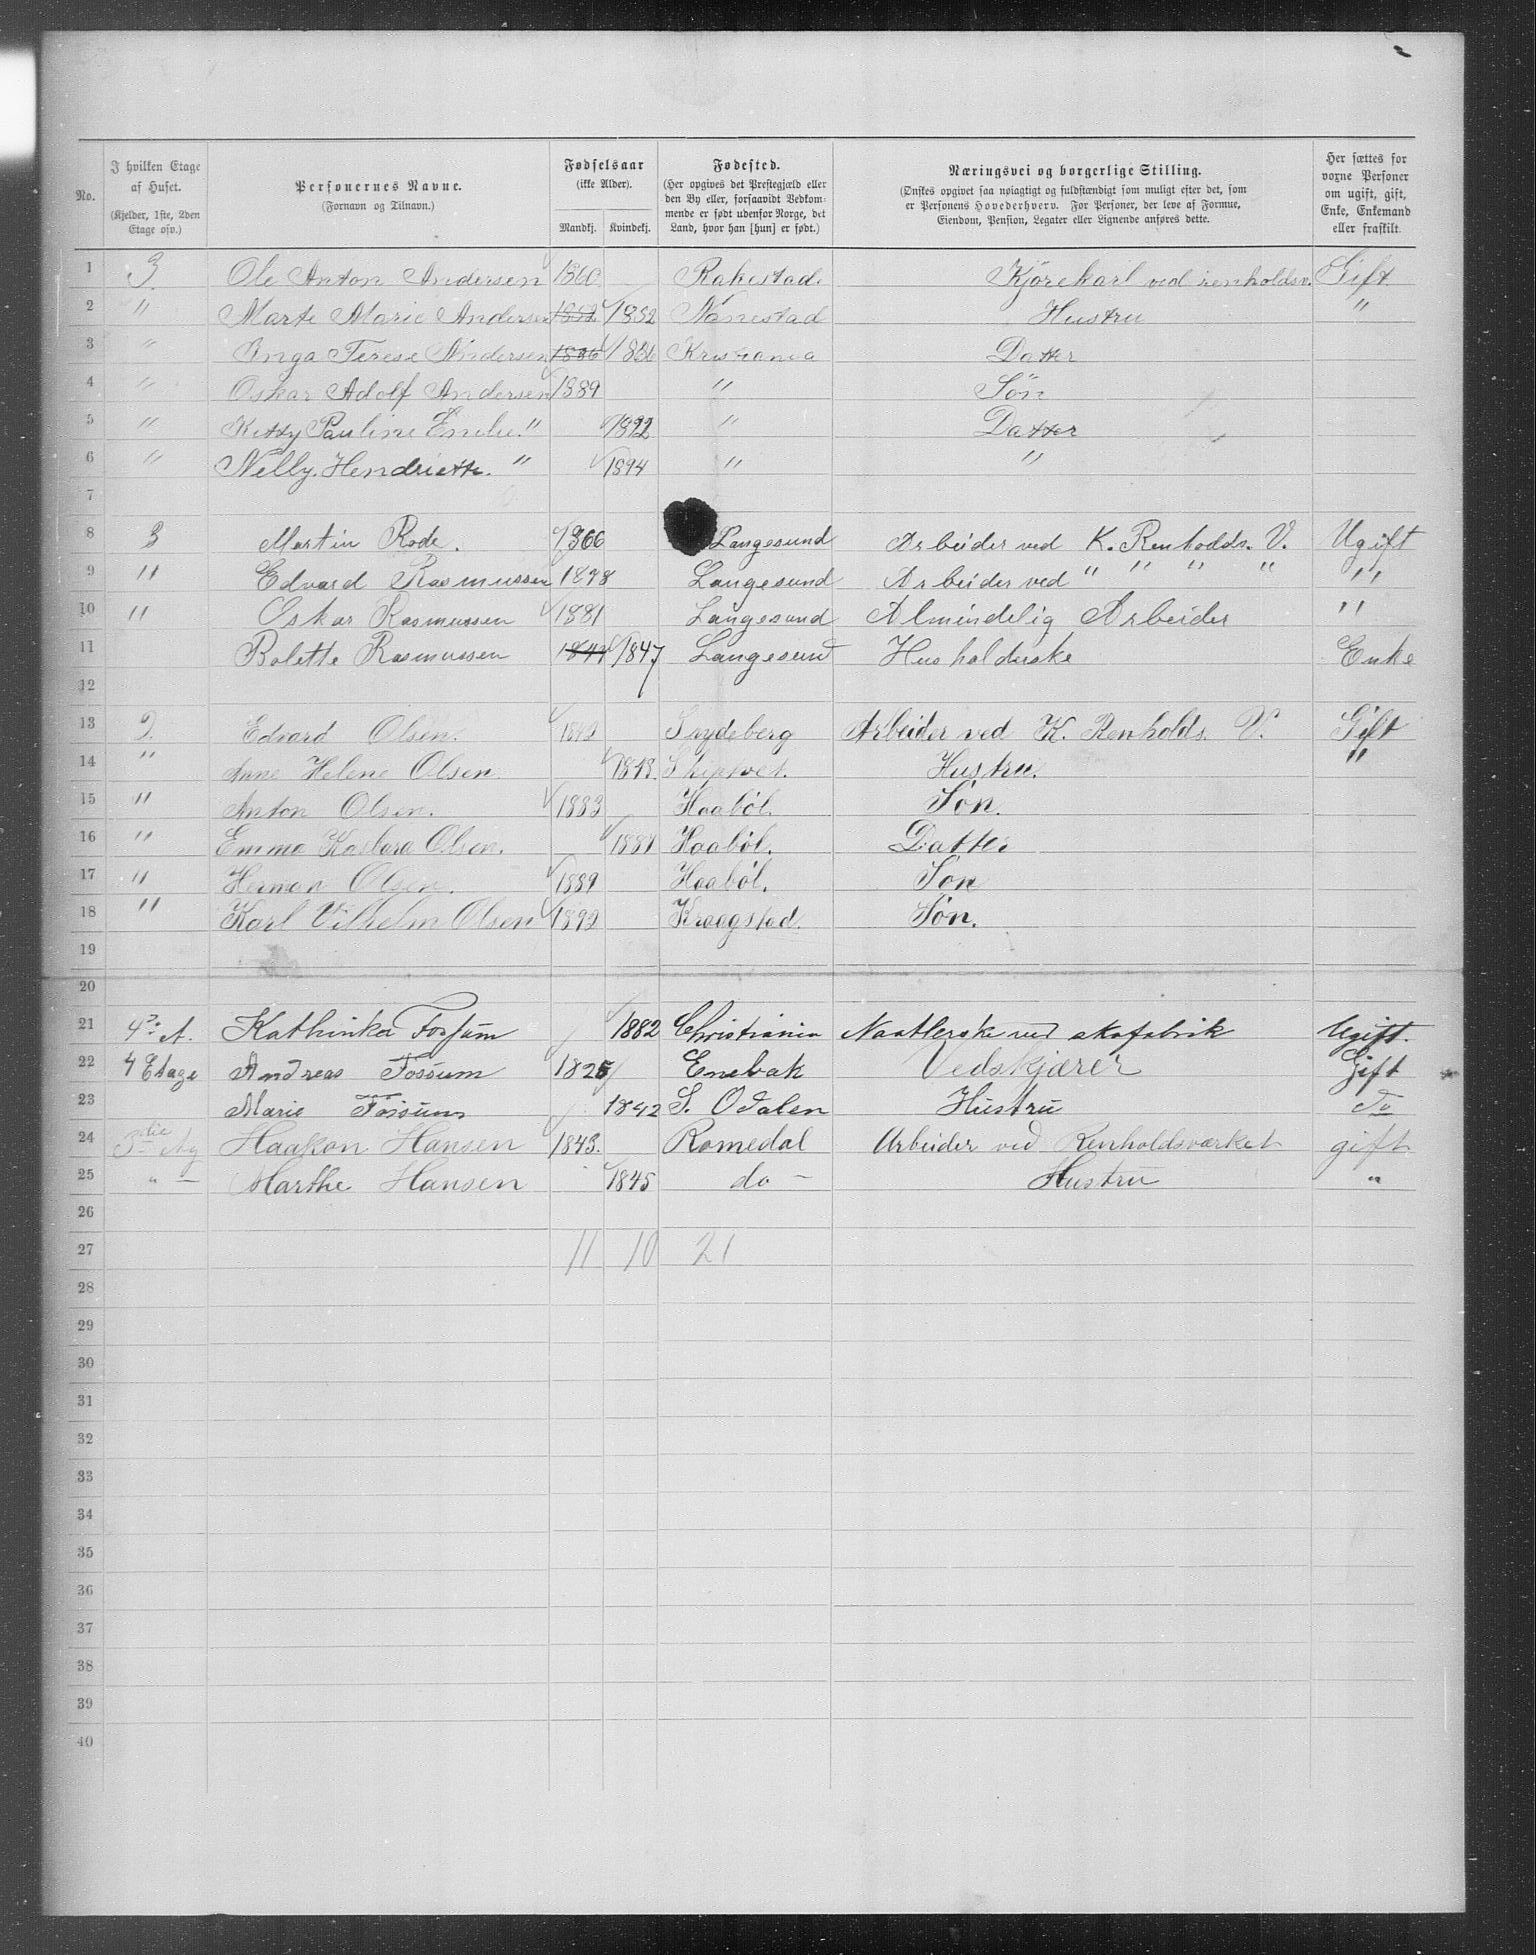 No. | I hvilken Etage af Huset. (Kjelder, 1ste, 2den Etage osv.) | Personernes Navne. (Fornavn og Tilnavn.) | Fødselsaar (ikke Alder). Mandkj. | Kvindekj. | Fødested. (Her opgives det Prestegjæld eller den By eller, forsaavidt Vedkommende er født udenfor Norge, det Land, hvor han [hun] er født.) | Næringsvei og borgerlige Stilling. (Ønskes opgivet saa nøiagtigt og fuldstændigt som muligt efter det, som er Personens Hovederhverv. For Personer, der leve af Formue, Eiendom, Pension, Legater eller Lignende anføres dette.) | Her sættes for voxne Personer om ugift, gift, Enke, Enkemand eller fraskilt.
1 | 3. | Ole Anton Andersen | 1860 | | Rakestad. | Kjörekarl ved renholdsv. | Gift
2 | " | Marte Marie Andersen | 1852 | 1852 | Nanestad | Hustru | "
3 | " | Inga Terese Andersen | 1886 | 1886 | Kristiania | Datter
4 | " | Oskar Adolf Andersen | 1889 | | " | Søn
5 | " | Kitty Pauline Emelie " | | 1892 | " | Datter
6 | " | Nelly. Hendriette. " | | 1894 | " | "
7
8 | 3 | Martin Rode. | 1866 | | Langesund | Arbeider ved K. Renholds. V. | Ugift
9 | " | Edvard Rasmussen | 1878 | | Langesund | Arbeider ved " " " " | "
10 | " | Oskar Rasmussen | 1881 | | Langesund | Almindelig Arbeider | "
11 | " | Bolette Rasmussen | 1847 | 1847 | Langesund | Husholderske | Enke
12
13 | 2. | Edvard Olsen. | 1849 | | Spydeberg | Arbeider ved K. Renholds. V. | Gift
14 | " | Anne Helene Olsen. | | 1848. | Skiptvet. | Hustru. | "
15 | " | Anton Olsen. | 1883 | | Haaböl. | Søn.
16 | " | Emma Kasbara Olsen. | | 1887 | Haaböl. | Datter
17 | " | Herman Olsen. | 1889 | | Haaböl. | Søn
18 | " | Karl Vilhelm Olsen | 1892 | | Kraagstad. | Søn.
19
20
21 | 4de A. | Kathinka Fossum | | 1882 | Christiania | Naatlerske ved skofabrik | Ugift.
22 | 4 Etage | Andreas Fossum | 1825 | | Enebak | Vedskjærer | Gift
23 | | Marie Fossum | | 1842 | S. Odalen | Hustru | Do
24 | | Haakon Hansen | 1843. | | Romedal | Arbeider ved Renholdsværket | gift
25 | " — | Marthe Hansen | | 1845 | do — | Hustru | "
26
27 | | | 11 | 10 | 21
28
29
30
31
32
33
34
35
36
37
38
39
40